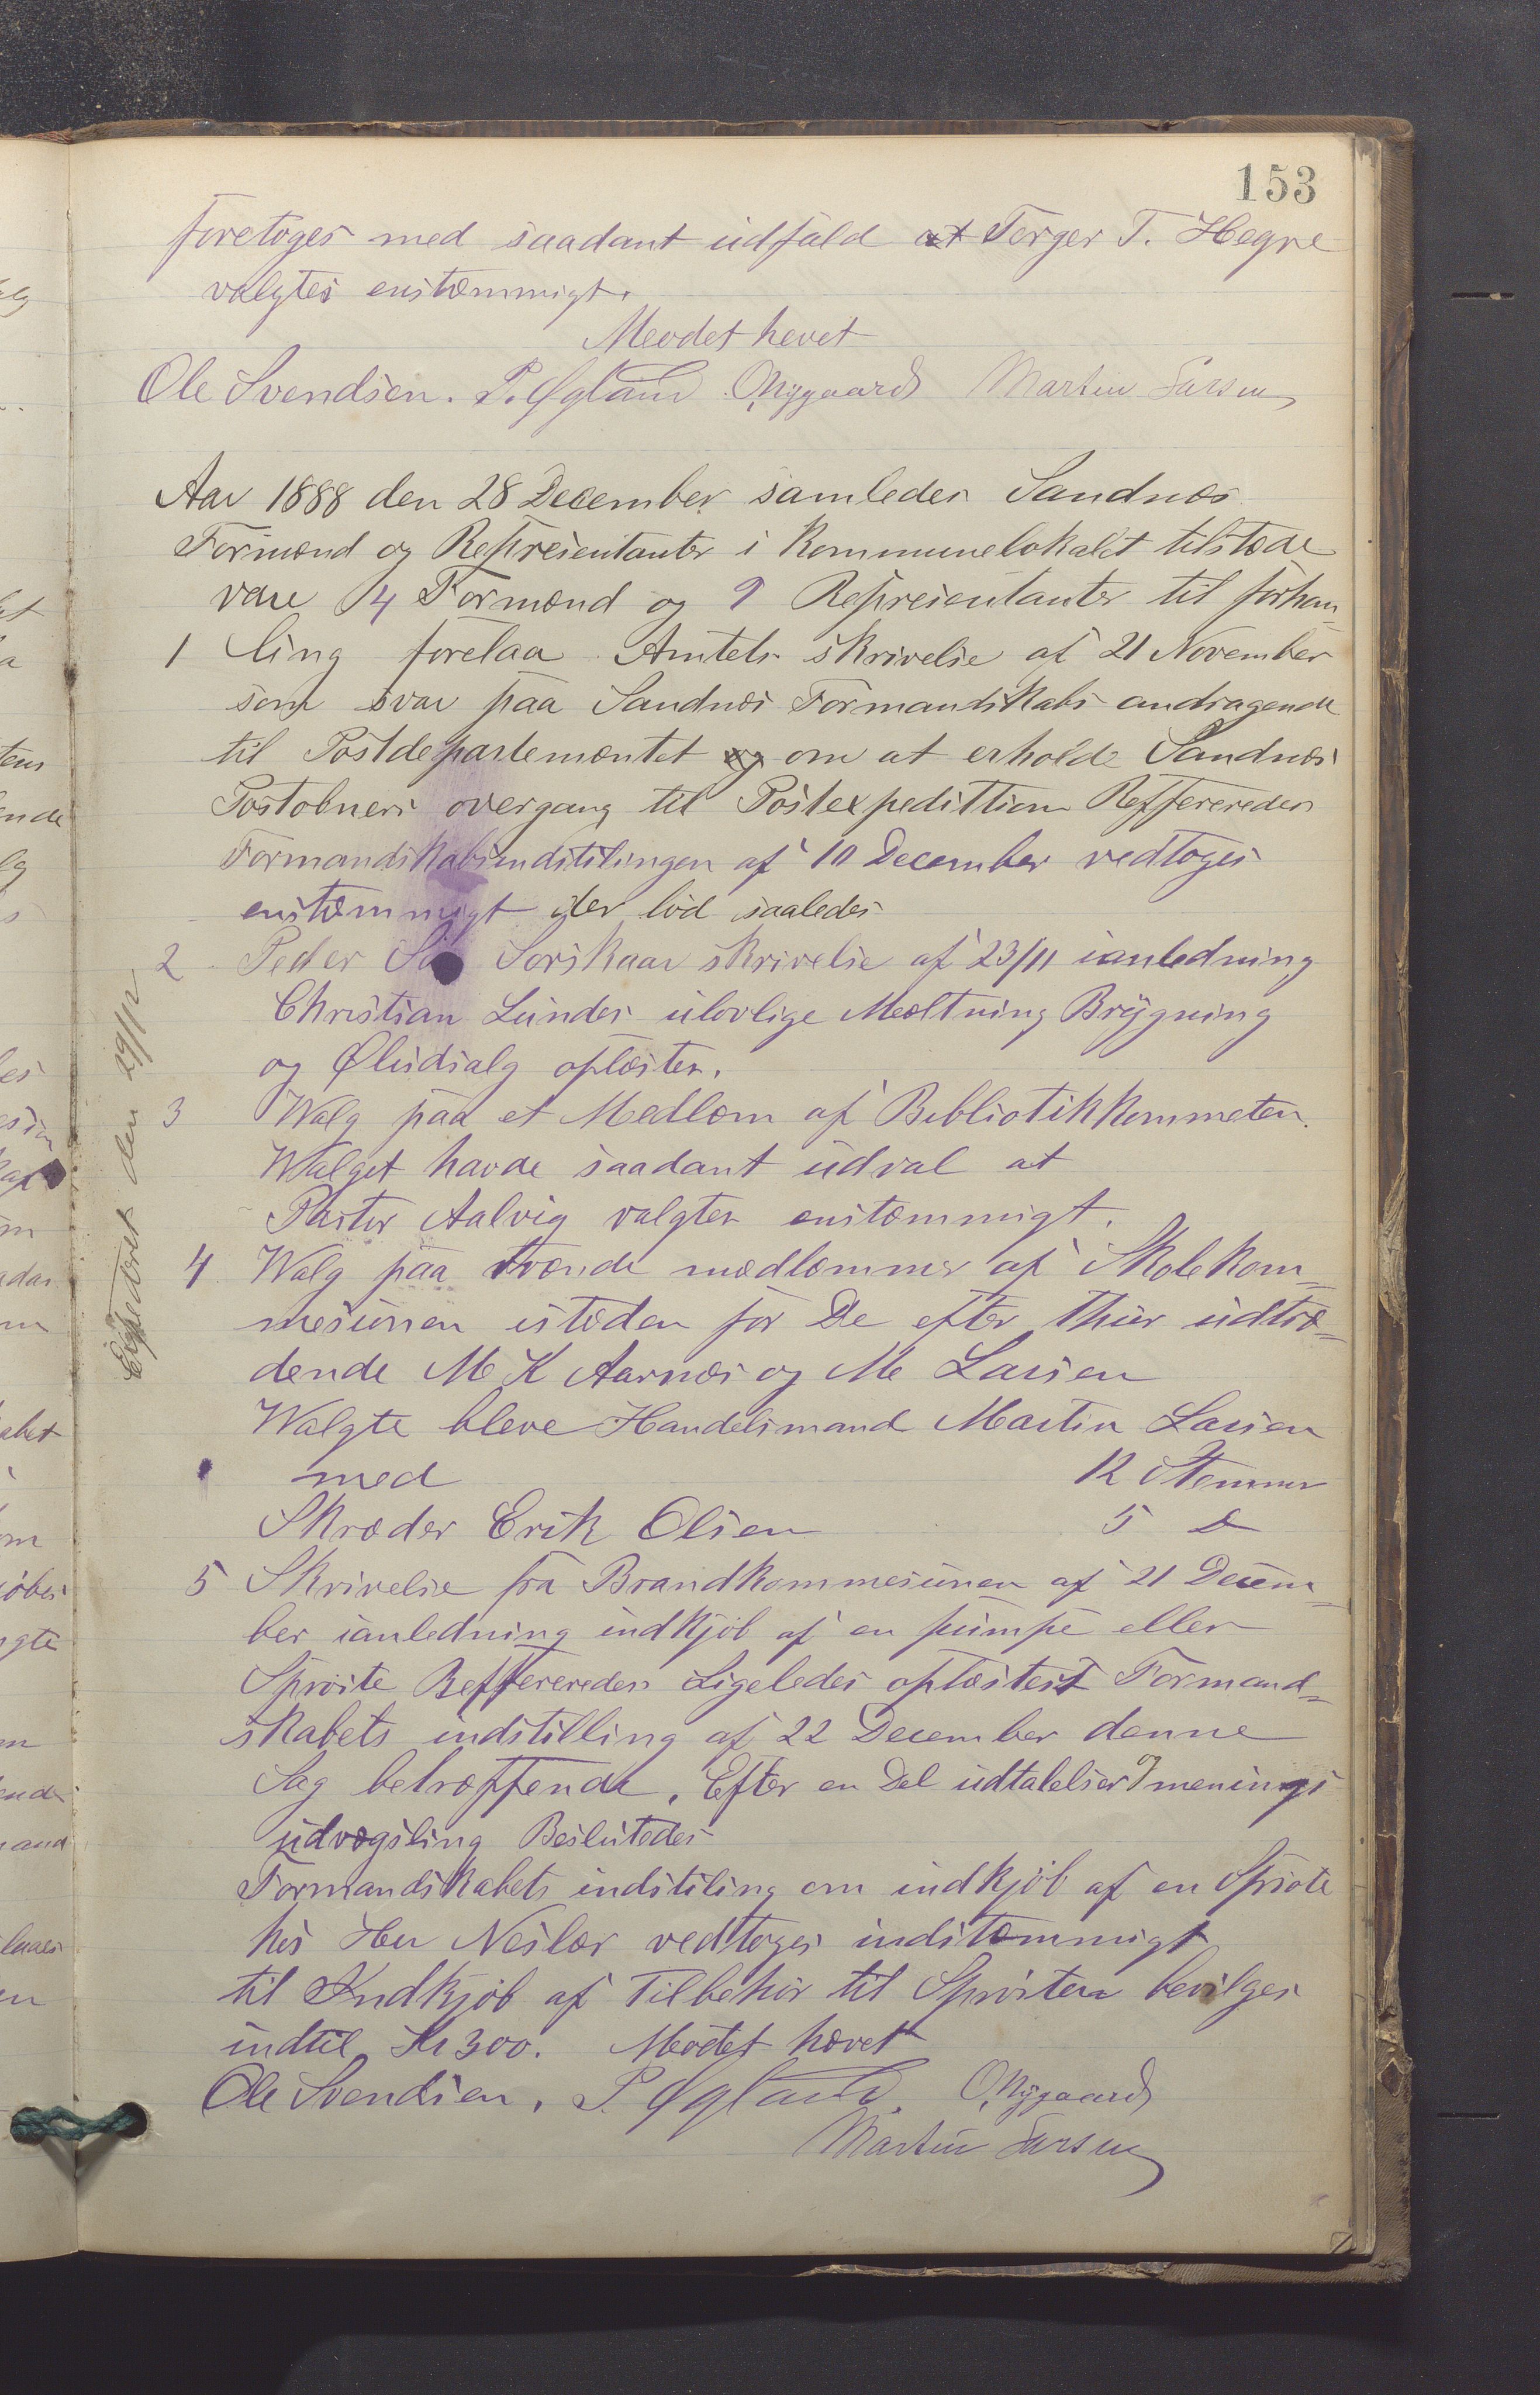 153
foretoges med saadant udfald at Torger T. Hegre
valgtes enstæmmigt.
Meodet hevet
Ole Svendsen. P. Øgland O Nygaard Martin Larsen
Aar 1888 den 28 December samledes Sandnæs
Formænd og Representanter i Kommunelokalet tilstæde
vare 4 Formænd og 9 Representanter til forhan
1 ling forelaa Amtets skrivelse af 21 November
som svar paa Sandnæs Formandskabs andragende
til Postdepartemæntet og om at erholde Sandnæs
Postobneri overgang til Postexpedittion Reffereredes
Formandskabsindstilingen af 10 December vedtoges
enstæmmigt der lød saaledes
2 Peder Sørskaar skrivelse af 23/11 ianledning
Christian Lundes ulovlige Mæltning Brygning
og Øludsalg oplæstes.
3 Walg paa et Medlem af Bibliotikkommeten.
Walget havde saadant udval at
Pastor Aalvig valgtes enstæmmigt.
4 Walg paa tvænde mædlæmmer af Skolekom=
mesionen isteden for De efter thur udtræ=
dende M K Aarnæs og M Larsen
Walgte bleve Handelsmand Martin Larsen
med 12 Stemmer
Skræder Erik Olsen 5 D
5 Skrivelse fra Brandkommesionen af 21 Decem=
ber ianledning indkjøb af en pumpe eller
Sprøite Reffereredes Ligeledes oplæstest Formand=
skabets indstilling af 22 December denne
Sag betræffende. Efter en Del udtalelser og menings
udvægsling Beslutedes
Formandskabets indstiling om indkjøb af en Sprøite
hos Her Neslær vedtoges indstæmmigt
til Indkjøb af Tilbehør til Sprøiten bevilges
indtil Kr 300. Mødet hævet
Ole Svendsen. P. Øgland. O Nygaard
Martin Larsen
Expederet den 29/12